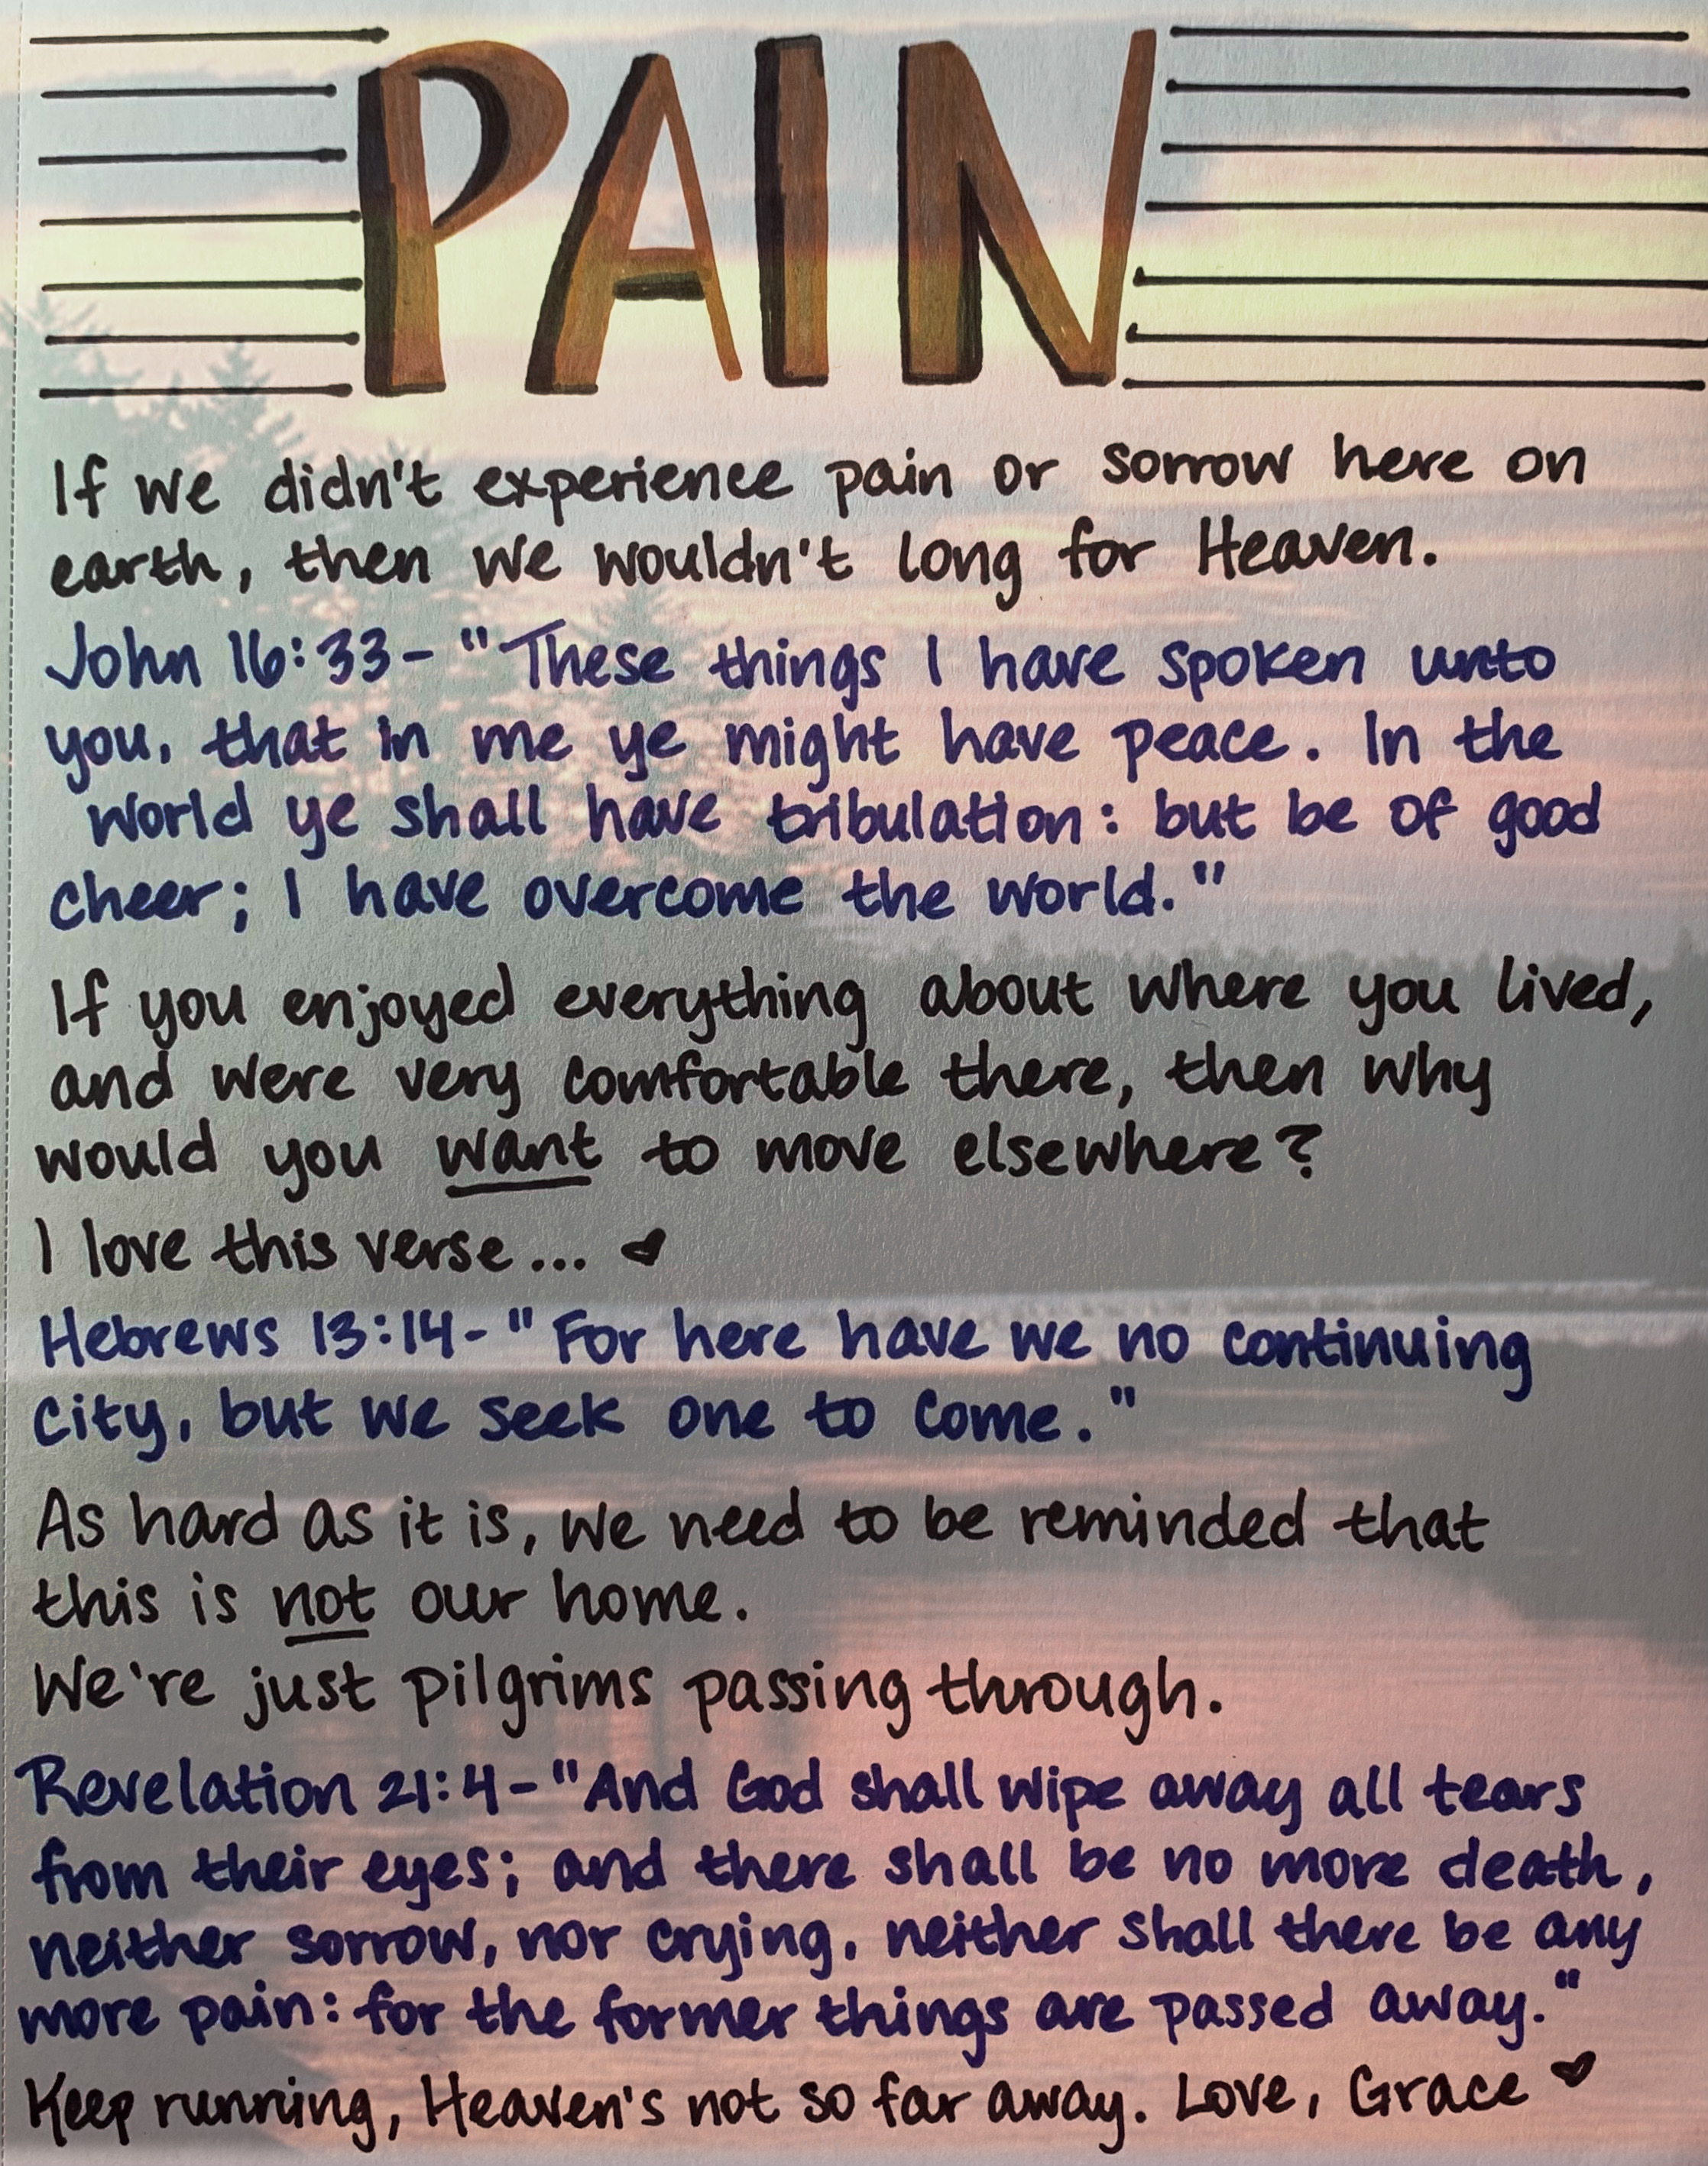 PAIN
If we didn't experience pain or sorrow here on
earth, then we wouldn't long for Heaven.
John 16:33- "These things I have spoken unto
you, that in me ye might have peace. In the
world ye shall have tribulation: but be of good
cheer; I have overcome the world."
If you enjoyed everything about where you lived,
and were very comfortable there, then why
would you want to move elsewhere?
I love this verse... ♥
Hebrews 13:14- "For here have we no continuing
city, but we seek one to come."
As hard as it is, we need to be reminded that
this is not our home.
We're just pilgrims passing through.
Revelation 21:4- "And God shall wipe away all tears
from their eyes; and there shall be no more death,
neither sorrow, nor crying, neither shall there be any
more pain: for the former things are passed away."
Keep running, Heaven's not so far away. Love, Grace ♥